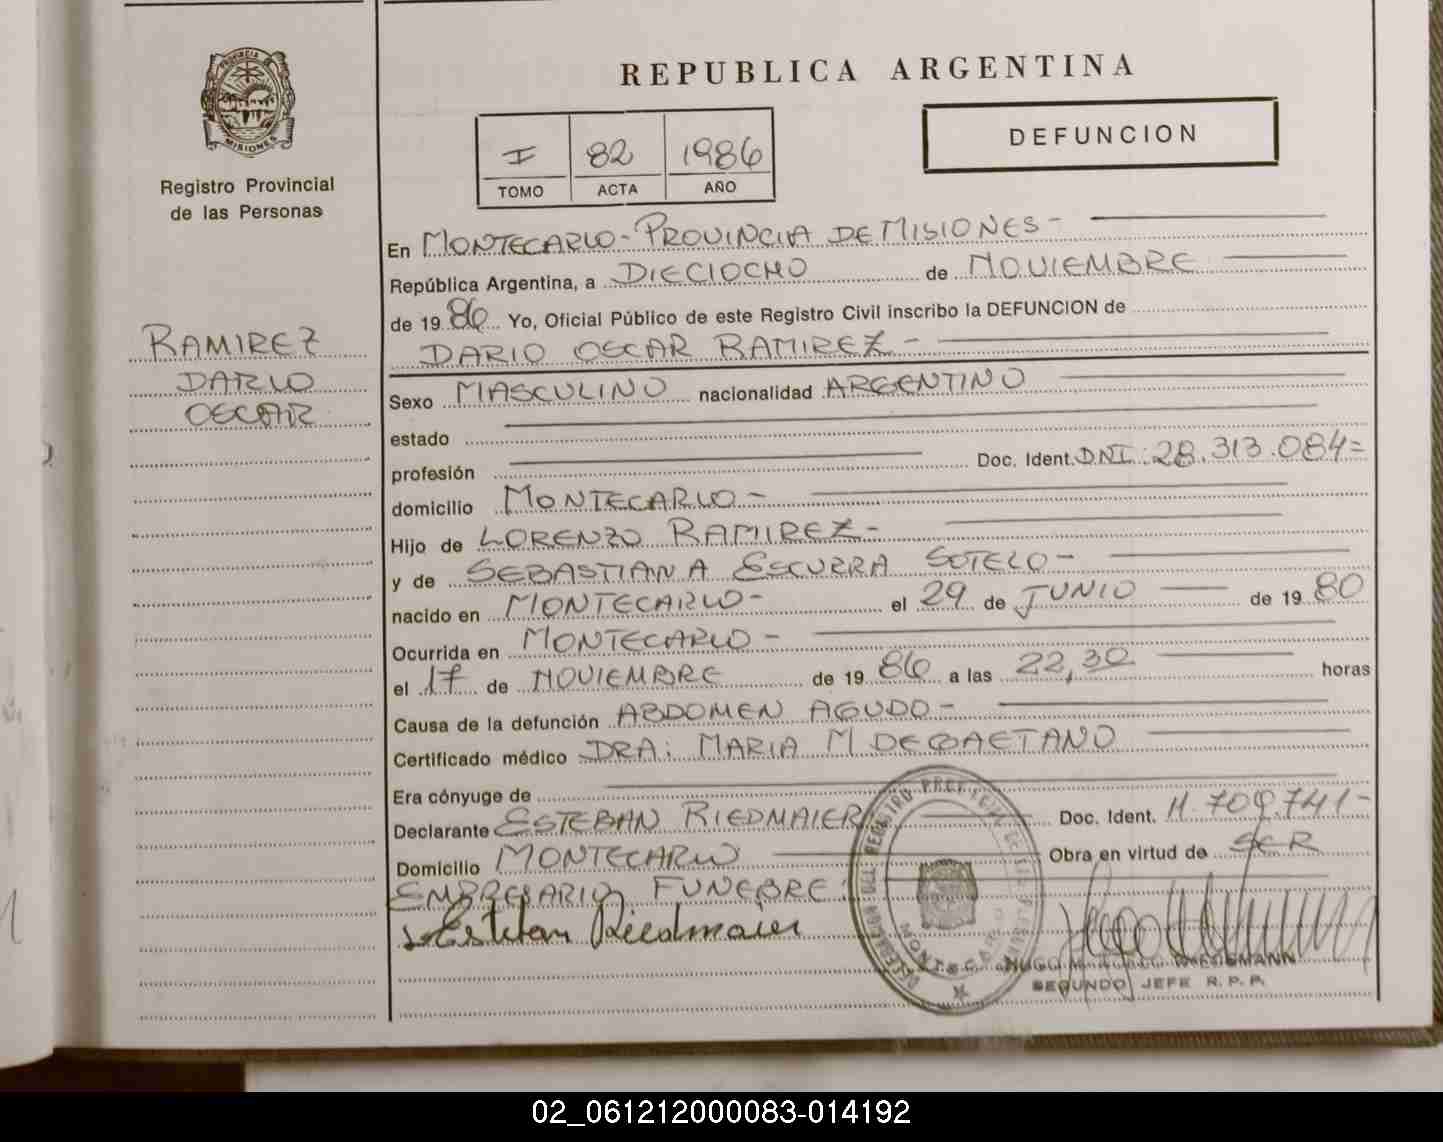 PROVINCIA DE
MISIONES
Registro Provincial
de las Personas
RAMIREZ
DARIO
OSCAR
REPUBLICA ARGENTINA
I 82 1986
TOMO ACTA AÑO
DEFUNCION
En MONTECARLO - PROVINCIA DE MISIONES -
República Argentina, a DIECIOCHO de NOVIEMBRE
de 19 86 Yo, Oficial Público de este Registro Civil inscribo la DEFUNCION de
DARIO OSCAR RAMIREZ -
Sexo MASCULINO nacionalidad ARGENTINO
estado
profesión Doc. Ident. DNI: 28.313.084=
domicilio MONTECARLO -
Hijo de LORENZO RAMIREZ -
y de SEBASTIANA ESCURRA SOTELO -
nacido en MONTECARLO - el 29 de JUNIO de 19 80
Ocurrida en MONTECARLO -
el 17 de NOVIEMBRE de 19 86 a las 22,30 horas
Causa de la defunción ABDOMEN AGUDO -
Certificado médico DRA: MARIA M DEGAETANO
Era cónyuge de
Declarante ESTEBAN RIEDMAIER Doc. Ident. 11.709.741-
Domicilio MONTECARLO Obra en virtud de SER
EMPRESARIO FUNEBRE:
Esteban Riedmaier
DELEGACION DEL REGISTRO PROV. DE LAS PERSONAS
MONTECARLO
HUGO
SEGUNDO JEFE R. P. P.
02_061212000083-014192